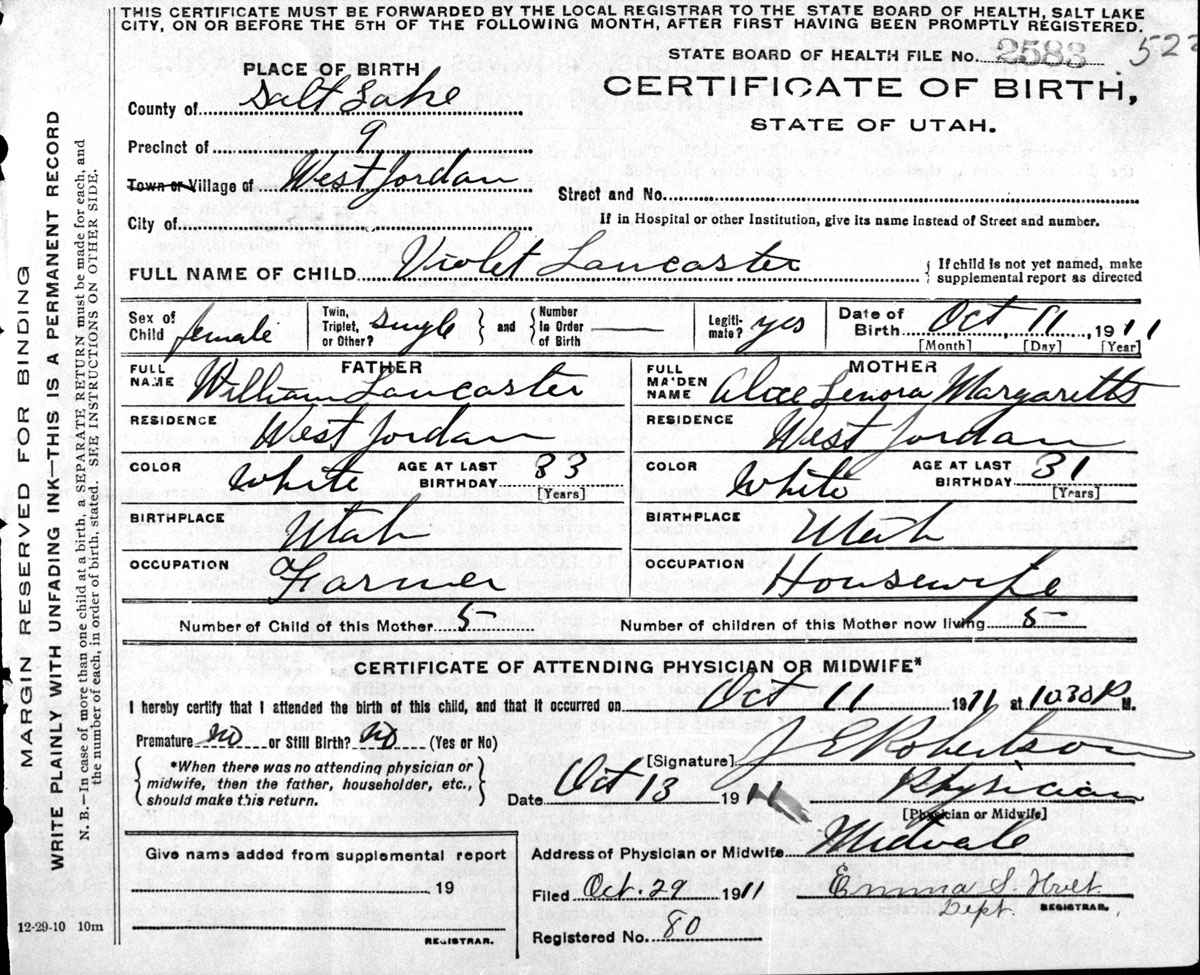 THIS CERTIFICATE MUST BE FORWARDED BY THE LOCAL REGISTRAR TO THE STATE BOARD OF HEALTH, SALT LAKE
CITY, ON OR BEFORE THE 5TH OF THE FOLLOWING MONTH, AFTER FIRST HAVING BEEN PROMPTLY REGISTERED.
STATE BOARD OF HEALTH FILE No. 2583 522
PLACE OF BIRTH
CERTIFICATE OF BIRTH,
STATE OF UTAH.
County of Salt Lake
Precinct of 9
Town or Village of West Jordan
Street and No.
City of
If in Hospital or other Institution, give its name instead of Street and number.
FULL NAME OF CHILD Violet Lancaster { If child is not yet named, make
supplemental report as directed
Sex of Child female Twin, Triplet, or Other? single } and { Number In Order of Birth — Legiti-mate? yes Date of Birth Oct 11, 1911
[Month] [Day] [Year]
FATHER MOTHER
FULL NAME William Lancaster FULL MAIDEN NAME Alice Lenora Margaretts
RESIDENCE West Jordan RESIDENCE West Jordan
COLOR White AGE AT LAST BIRTHDAY 33 [Years] COLOR White AGE AT LAST BIRTHDAY 31 [Years]
BIRTHPLACE Utah BIRTHPLACE Utah
OCCUPATION Farmer OCCUPATION Housewife
Number of Child of this Mother 5 Number of children of this Mother now living 5
CERTIFICATE OF ATTENDING PHYSICIAN OR MIDWIFE*
I hereby certify that I attended the birth of this child, and that it occurred on Oct 11 1911 at 1030 P M.
Premature no or Still Birth? no (Yes or No)
[Signature] J E Robertson
{ *When there was no attending physician or
midwife, then the father, householder, etc.,
should make this return. }
Date Oct 13 1911 Physician
[Physician or Midwife]
Give name added from supplemental report
19
REGISTRAR.
Address of Physician or Midwife Midvale
Filed Oct. 29 1911 Emma S. Holt.
Dept. REGISTRAR.
Registered No. 80
12-29-10 10m
MARGIN RESERVED FOR BINDING
WRITE PLAINLY WITH UNFADING INK—THIS IS A PERMANENT RECORD
N. B.—In case of more than one child at a birth, a SEPARATE RETURN must be made for each, and
the number of each, in order of birth, stated. SEE INSTRUCTIONS ON OTHER SIDE.